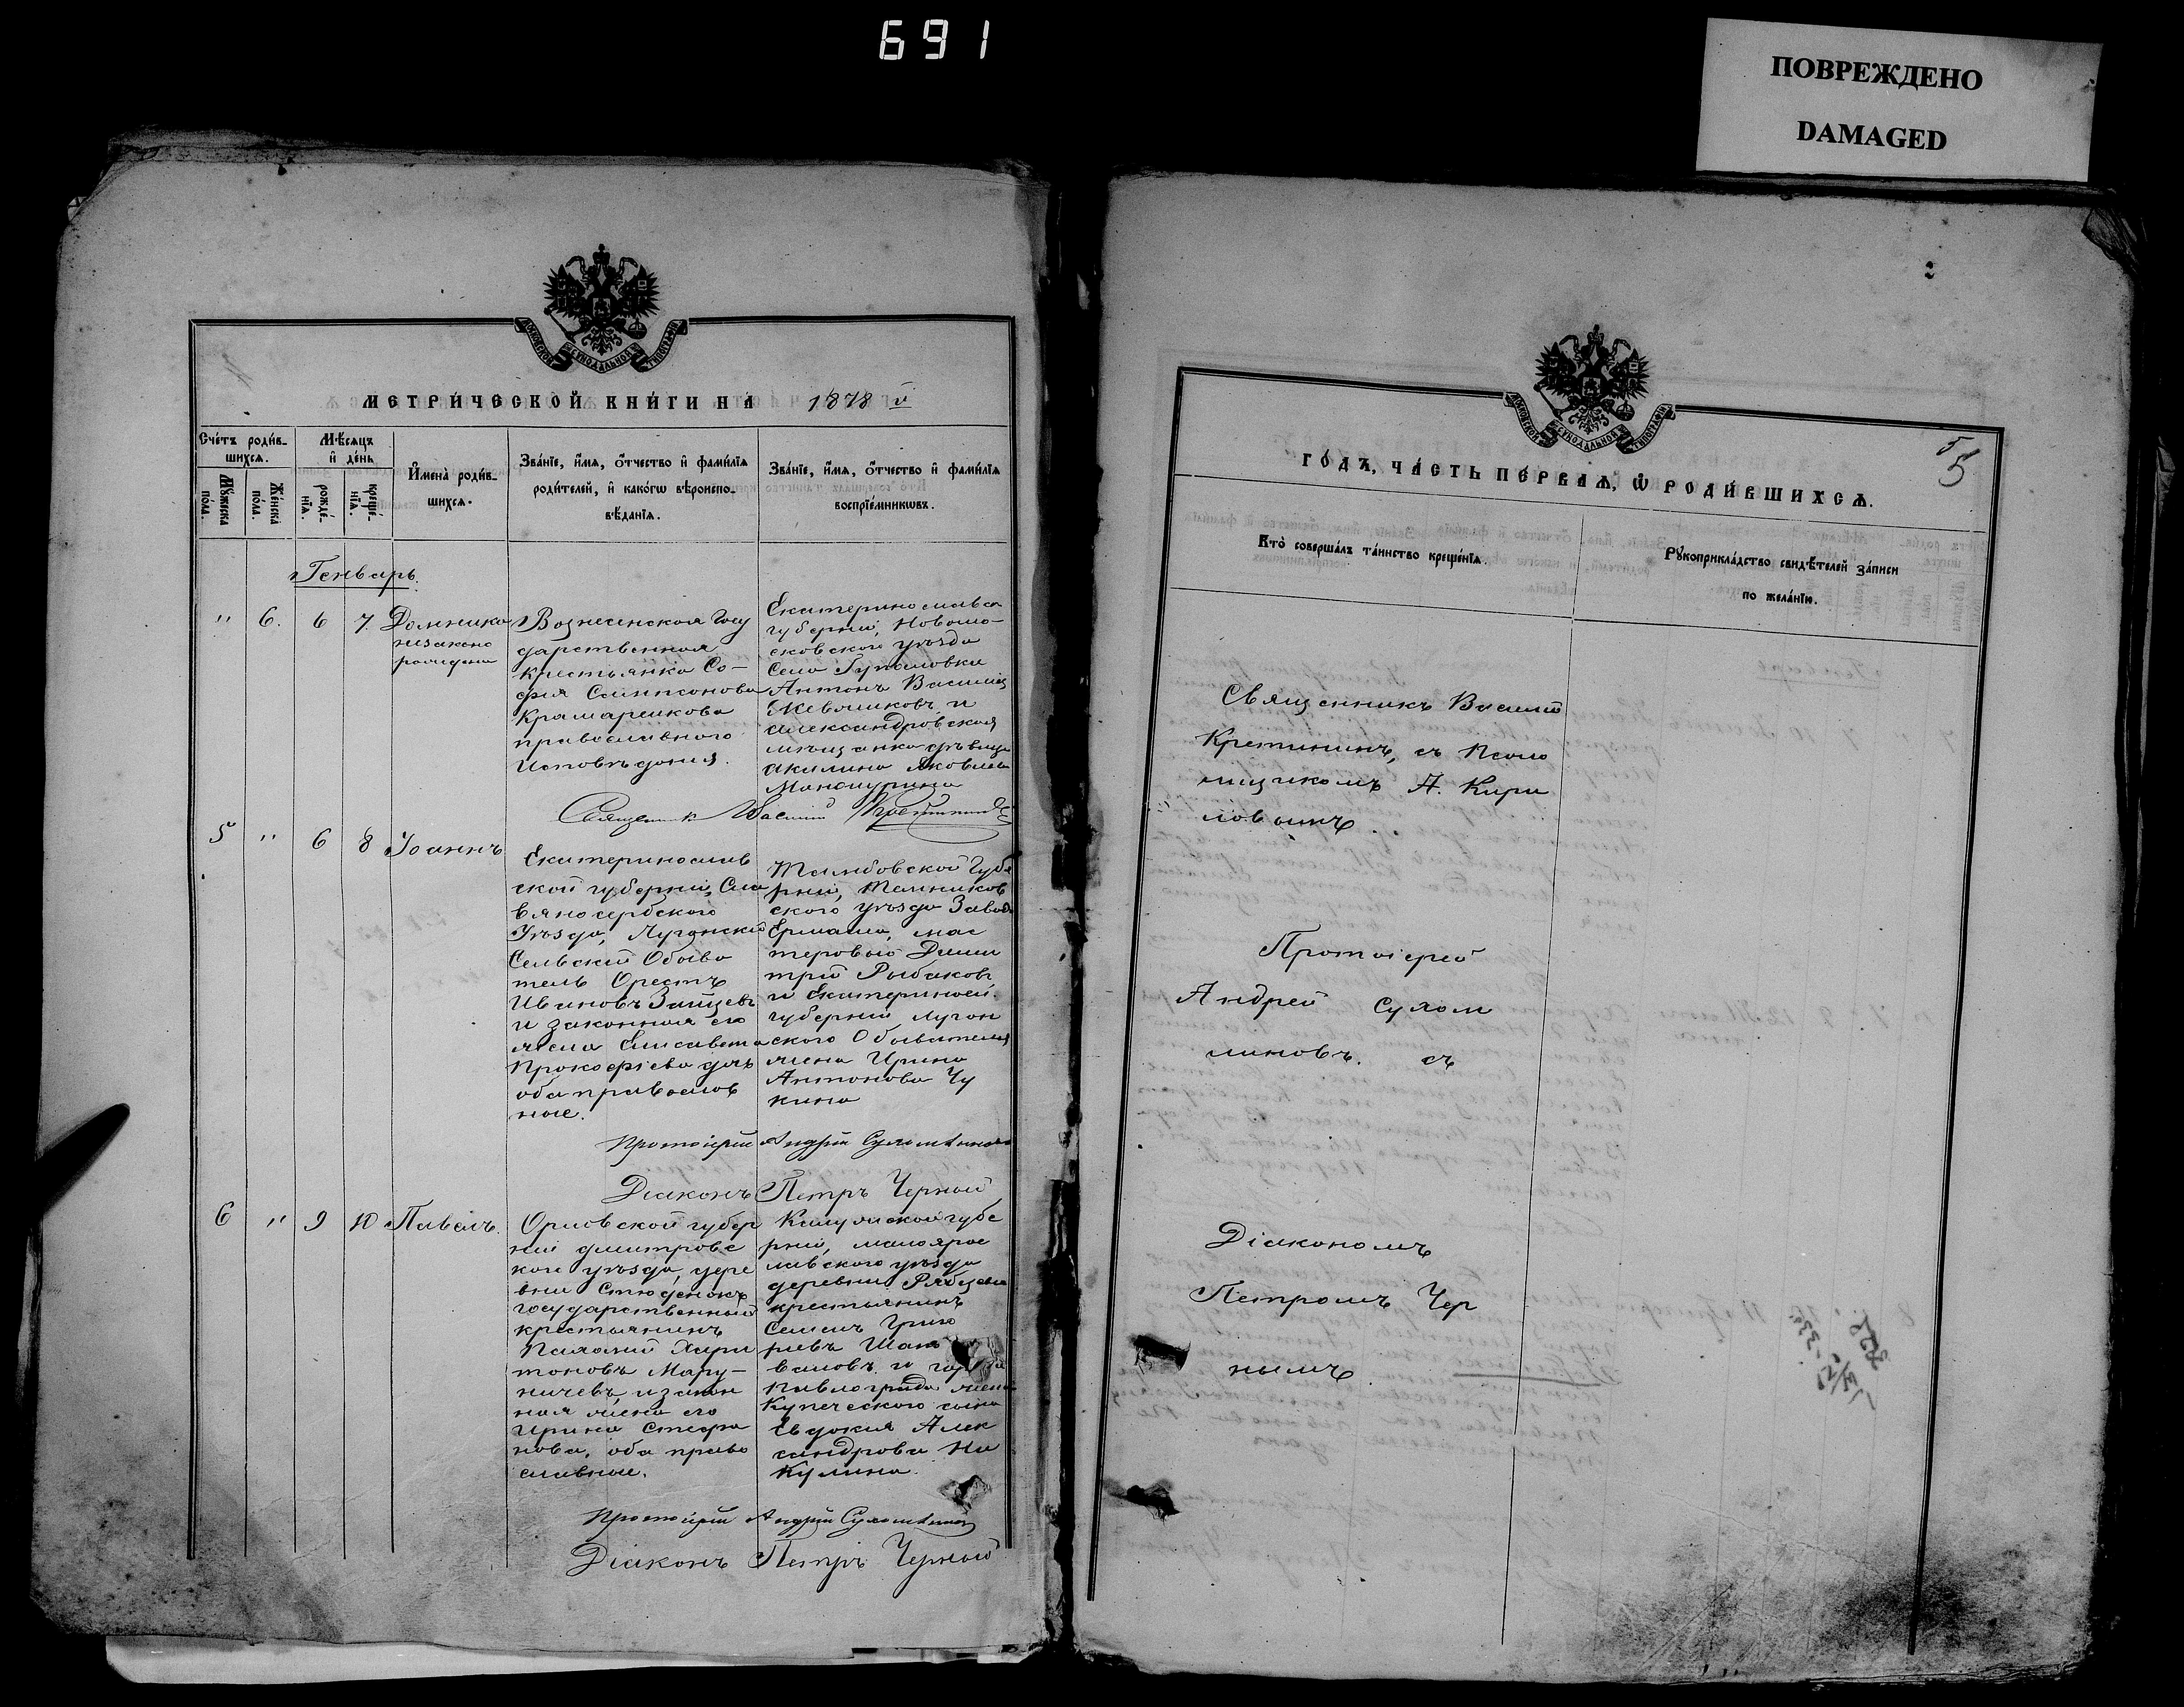 691
ПОВРЕЖДЕНО
DAMAGED
МОСКОВСКОЙ СѴНОДАЛЬНОЙ ТИПОГРАФІИ
МЕТРИ́ЧЕСКОЙ КНИ́ГИ НА̀ 1878 й
Сче́тъ роди́в-
шихсѧ.
Мꙋ́жеска
по́ла.
Же́нска
по́ла.
Мѣ́сѧцъ
и҆ де́нь
рожде́-
нїѧ.
креще́-
нїѧ.
И҆мена̀ роди́в-
шихсѧ.
Зва́нїе, и҆́мѧ, ѻ҆́тчество и҆ фами́лїѧ
роди́телей, и҆ како́гѡ вѣроиспо-
вѣ́данїѧ.
Зва́нїе, и҆́мѧ, ѻ҆́тчество и҆ фами́лїѧ
воспрїе́мникѡвъ.
Генварь.
" 6. 6 7. Домника
незаконо
рождена
Вознесенская Госу
дарственная
крестьянка Со-
фия Сампсонова
Крамаренкова
православного
Исповѣдания.
Екатеринославск
губернии, Новомо-
сковского уѣзда
Села Гупаловки
Антонъ Василіев
Жевтиков и
Александровская
мѣщанка дѣвица
Акилина Яковлева
Священник Василий Кретинин
5 " 6 8 Іоаннъ
Екатеринослав
ской губернии, Сла
вяносербского
Уѣзда, Луганский
Сельский Обыва
тель Орестъ
Ивановъ Зайцевъ
и законная его
жена Елисавета
Прокофіева дочь
оба православ
ные.
Тамбовской Губе
рнии, Темников
ского уѣзда Завода
Ермашо, мас
теровой Дими
трій Рыбаковъ
и Екатериносл.
губерніи Луган
ского Обывателя
жена Ирина
Антонова Чу
кина
Протоіерей Андрій Сухомлиновъ
Діаконъ Петръ Черный
6 " 9 10 Павелъ.
Орловской губер
ніи Дмитровс
кого уѣзда, дере
вни Студенокъ
государственный
крестьянинъ
Пахомий Хари
тоновъ Мару-
ничевъ, и закон
ная жена его
Ирина Стефа
нова, оба право
славные.
Калужской губе
рніи, малоярос
лавского уѣзда
деревни Рябцева
крестьянинъ
Семенъ Григо
рьевъ
Павлограда жена
Купеческого сына
Евдокия Алек
сандрова Ни
кулина.
Протоіерей Андрій Сухомлинов
Діаконъ Петръ Черный
МОСКОВСКОЙ СѴНОДАЛЬНОЙ ТИПОГРАФІИ
5
5
ГО́ДЪ, ЧА́СТЬ ПЕ́РВАѦ, Ѡ҆ РОДИ́ВШИХСѦ.
Кто̀ соверша́лъ та́инство креще́нїѧ.
Рꙋкоприкла́дство свидѣ́телей за́писи
по жела́нїю.
Священникъ Василій
Кретининъ, съ Псало
мщикомъ А. Кири
ловымъ.
Протоіерей
Андрей Сухом
линовъ. съ
Діакономъ
Петромъ Чер
нымъ.